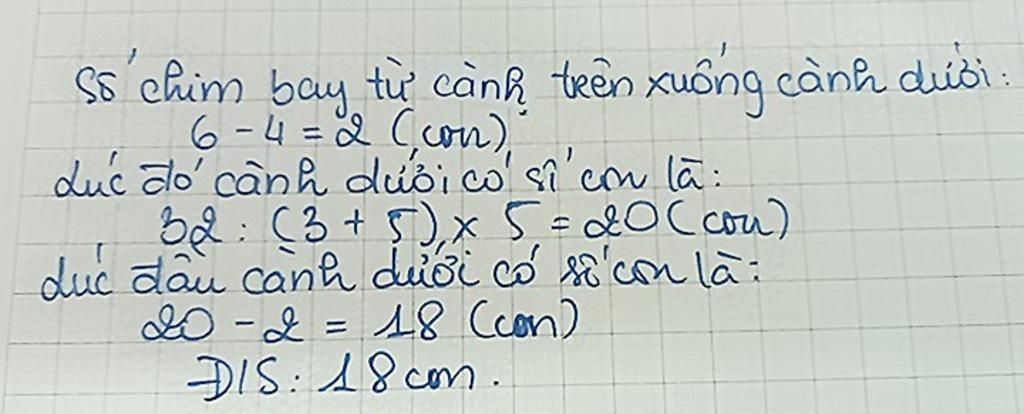 Số chim bay từ cành trên xuống cành dưới:
6 - 4 = 2 (con)
Lúc đó cành dưới có số con là:
32 : (3 + 5) x 5 = 20 (con)
Lúc đầu cành dưới có số con là:
20 - 2 = 18 (con)
Đ/S: 18 con.